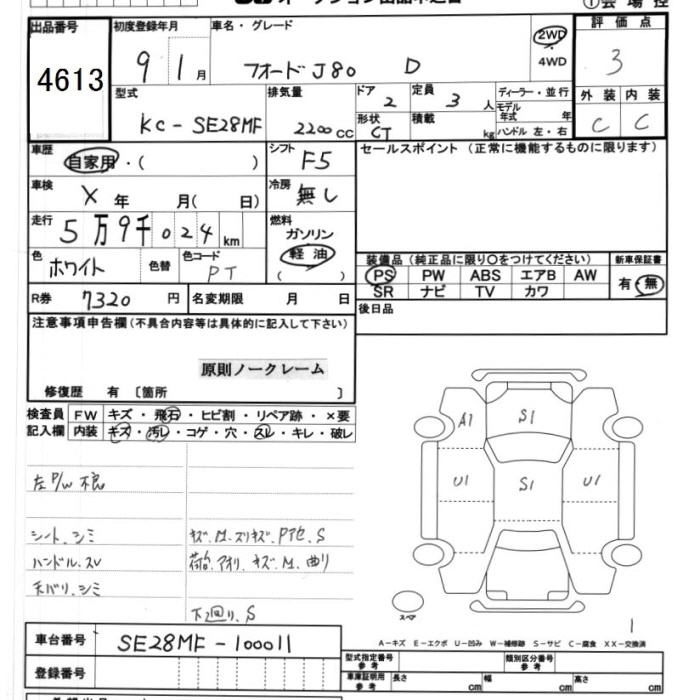 出品番号
4613
初度登録年月
9 1月
車名・グレード
フォードJ80 D
2WD
4WD
評価点
3
外装 内装
C C
型式
KC-SE28MF
排気量
2200cc
ドア
2
定員
3人
形状
CT
積載
kg
ディーラー・並行
モデル年式 年
ハンドル 左・右
車歴
自家用・( )
シフト
F5
セールスポイント (正常に機能するものに限ります)
車検
X 年 月( 日)
冷房
無し
走行
5万9千024km
燃料
ガソリン
軽油
( )
色
ホワイト
色替
色コード
PT
装備品(純正品に限り〇をつけてください)
PS PW ABS エアB AW
SR ナビ TV カワ
新車保証書
有・無
R券 7320円
名変期限 月 日
後日品
注意事項申告欄(不具合内容等は具体的に記入して下さい)
原則ノークレーム
修復歴 有 〔箇所 〕
検査員記入欄
FW キズ・飛石・ヒビ割・リペア跡・×要
内装 キズ・汚レ・コゲ・穴・スレ・キレ・破レ
左P/W不良
シート、シミ
ハンドル、スレ
天バリ、シミ
キズ、M、スリキズ、Pアセ、S
荷台、アオリ、キズ、M、曲り
下廻り、S
A1
S1
U1
S1
U1
スペア
1
A-キズ E-エクボ U-凹み W-補修跡 S-サビ C-腐食 XX-交換済
車台番号
SE28MF-100011
登録番号
型式指定番号 参考
類別区分番号 参考
車庫証明用 参考
長さ cm
幅 cm
高さ cm